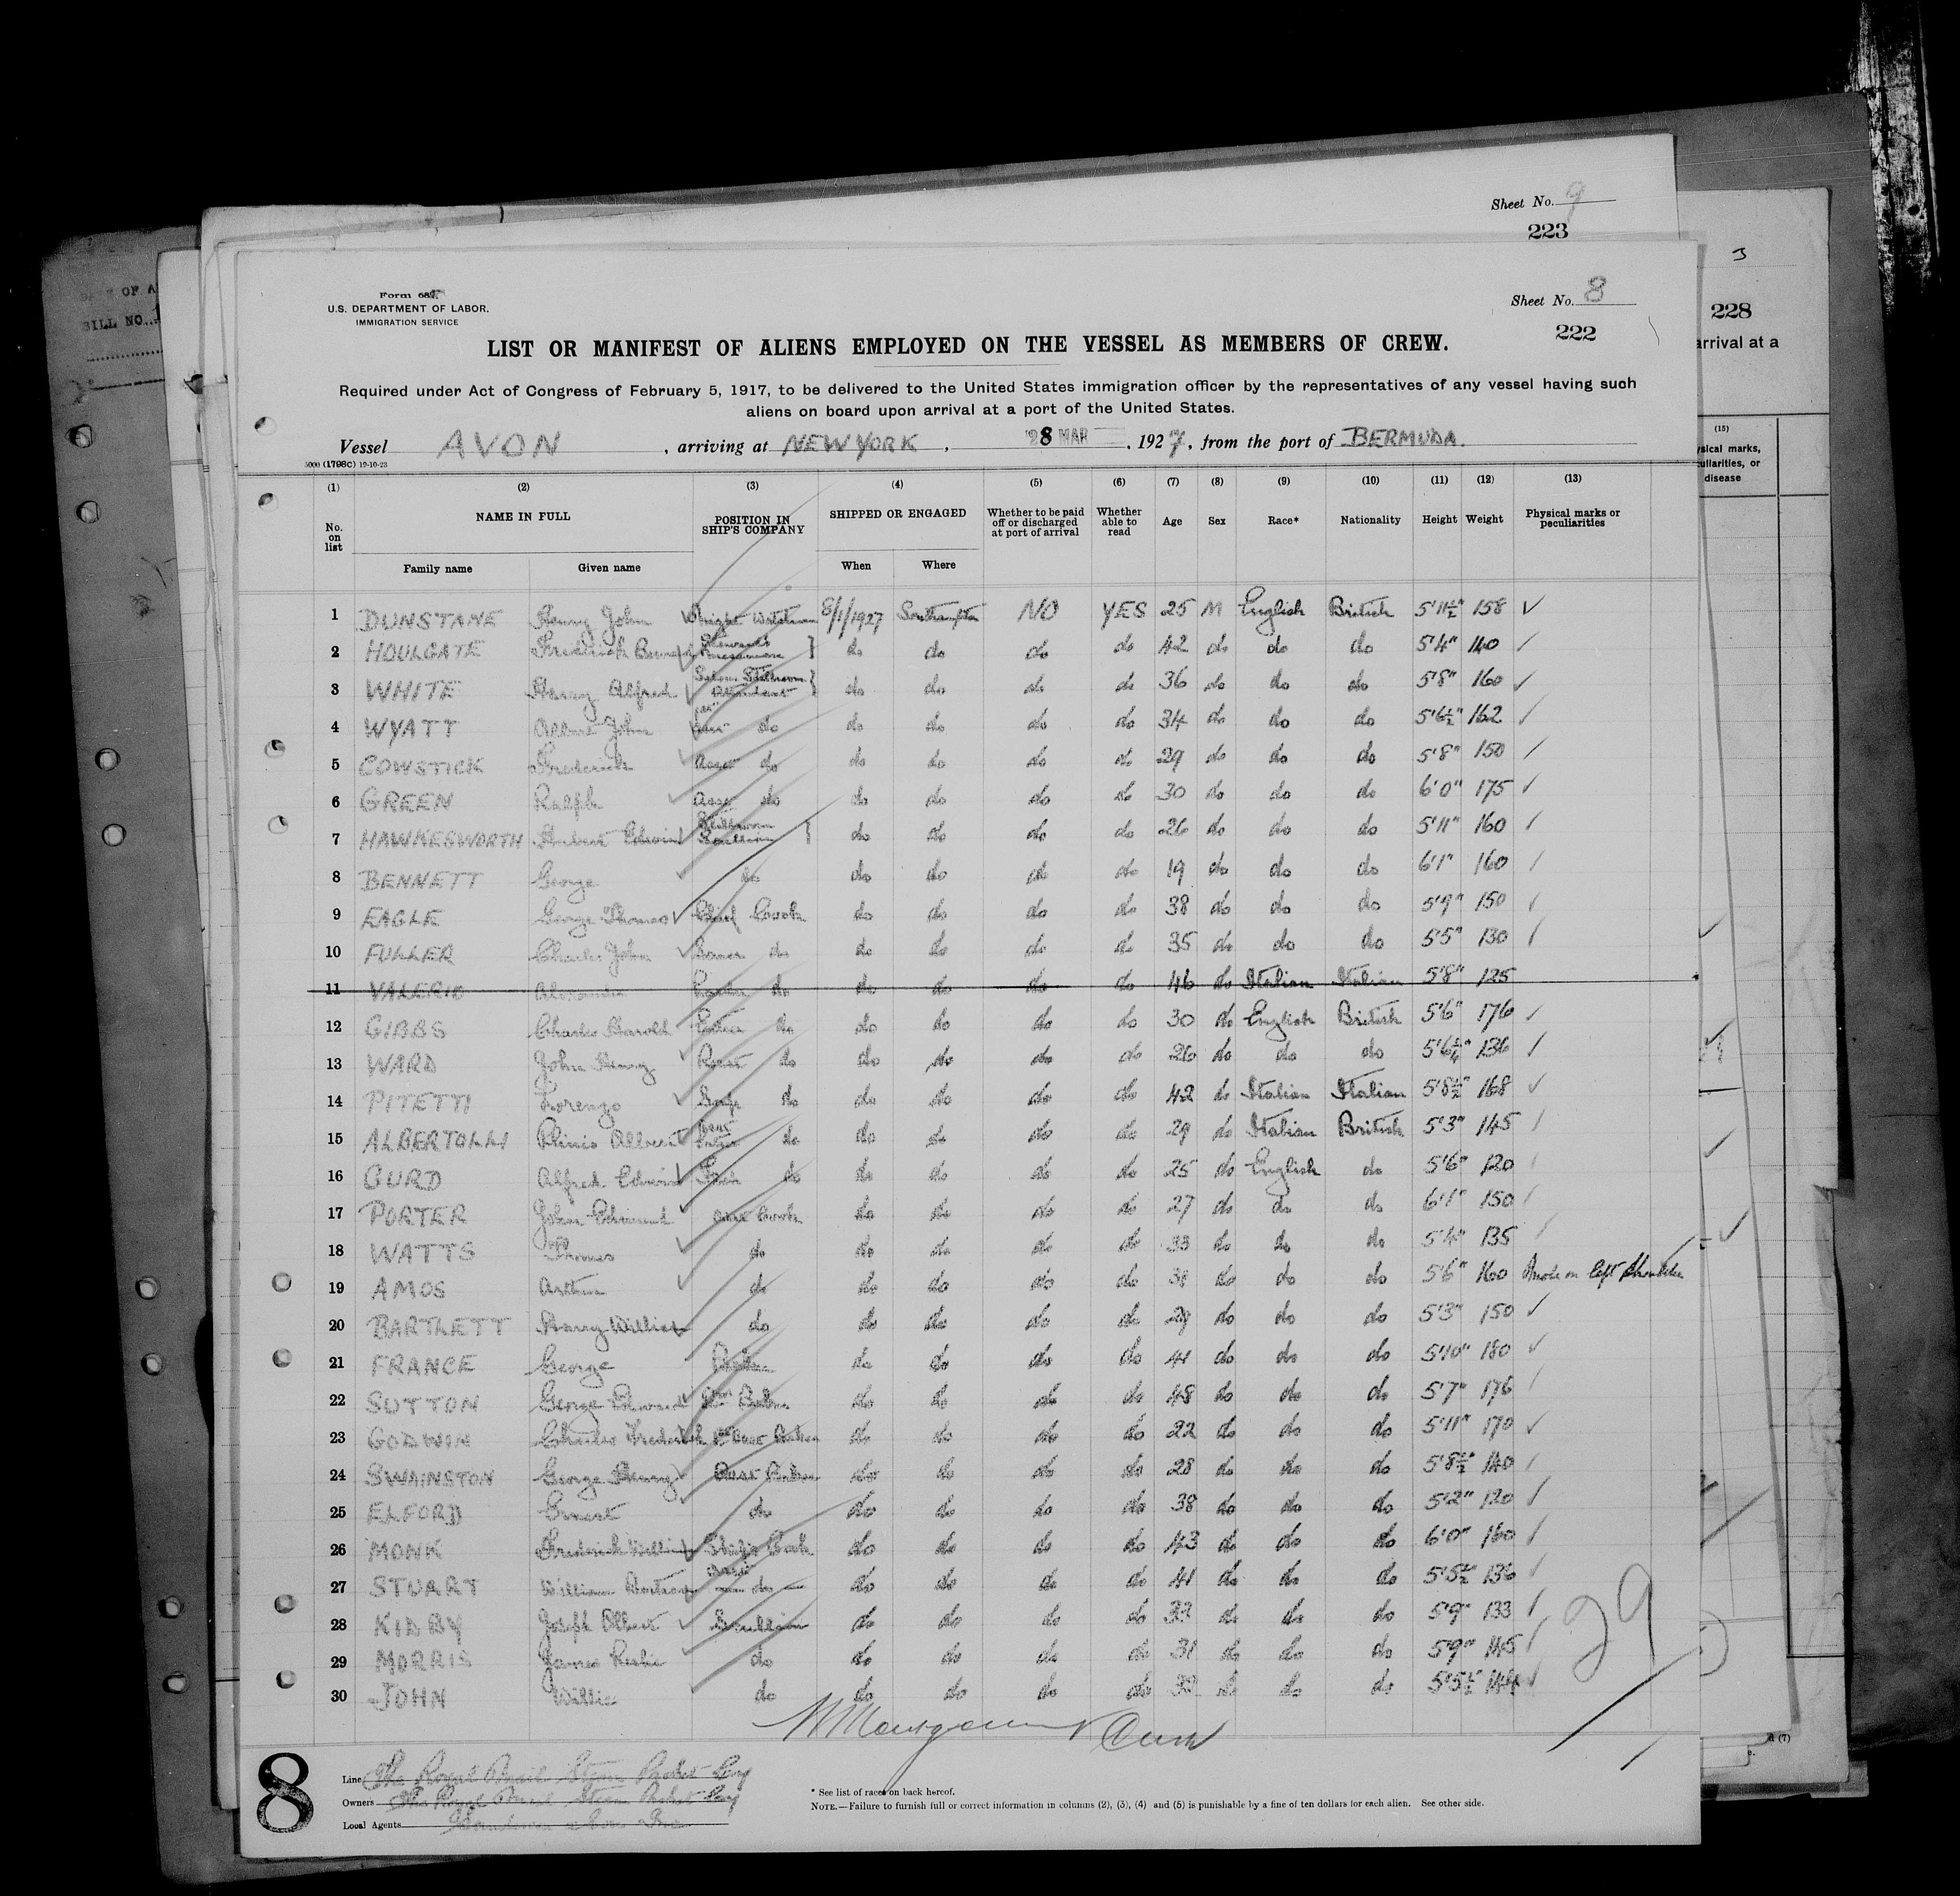 Sheet No. 9
223
3
228
arrival at a
(15)
Form 687
U.S. DEPARTMENT OF LABOR.
IMMIGRATION SERVICE
Sheet No. 8
222
LIST OR MANIFEST OF ALIENS EMPLOYED ON THE VESSEL AS MEMBERS OF CREW.
Required under Act of Congress of February 5, 1917, to be delivered to the United States immigration officer by the representatives of any vessel having such
aliens on board upon arrival at a port of the United States.
Vessel AVON, arriving at NEW YORK, 28 MAR, 1927, from the port of BERMUDA.
5000 (1798C) 19-10-23
(1) (2) (3) (4) (5) (6) (7) (8) (9) (10) (11) (12) (13)
No. on list NAME IN FULL POSITION IN SHIP'S COMPANY SHIPPED OR ENGAGED Whether to be paid off or discharged at port of arrival Whether able to read Age Sex Race* Nationality Height Weight Physical marks or peculiarities
Family name Given name When Where
1 DUNSTANE Henry John Night Watchman 8/1/1927 Southampton NO YES 25 M English British 5'11½" 158
2 HOULGATE Frederick do do do do 42 do do do 5'4" 140
3 WHITE Harry Alfred Attendant do do do do 36 do do do 5'8" 160
4 WYATT Albert John do do do do do 34 do do do 5'6½" 162
5 COWSTICK Frederick Asst do do do do do 29 do do do 5'8" 150
6 GREEN Ralph Asst do do do do do 30 do do do 6'0" 175
7 HAWKESWORTH Hubert Edwin Stillroom Scullion do do do do 26 do do do 5'11" 160
8 BENNETT George do do do do do 19 do do do 6'1" 160
9 EAGLE George Thomas Chief Cook do do do do 38 do do do 5'9" 150
10 FULLER Charles John Sauce do do do do do 35 do do do 5'5" 130
11 VALERIO Alexander Larder do do do do do 46 do Italian Italian 5'8" 125
12 GIBBS Charles Harold do do do do do 30 do English British 5'6" 176
13 WARD John Henry Roast do do do do do 26 do do do 5'6¼" 136
14 PITETTI Lorenzo Soup do do do do do 42 do Italian Italian 5'8½" 168
15 ALBERTOLLI Plinio Albert do do do do do 29 do Italian British 5'3" 145
16 GURD Alfred Edwin do do do do do 25 do English do 5'6" 120
17 PORTER John Edmund Asst Cook do do do do 27 do do do 6'1" 150
18 WATTS Thomas do do do do do 33 do do do 5'4" 135
19 AMOS Arthur do do do do do do do do 5'6" 160 on left shoulder
20 BARTLETT Harry William do do do do do 29 do do do 5'3" 150
21 FRANCE George do do do do 41 do do do 5'10" 180
22 SUTTON George Edward do do do do 48 do do do 5'7" 176
23 GODWIN Charles Frederick do do do do 22 do do do 5'11" 170
24 SWAINSTON George Henry do do do do 28 do do do 5'8½" 140
25 ELFORD Ernest do do do do do 38 do do do 5'2" 120
26 MONK Frederick William Ship's Cook do do do do 43 do do do 6'0" 160
27 STUART William do do do do do 41 do do do 5'5½" 136
28 KIDBY Joseph Albert Scullion do do do do 33 do do do 5'9" 133
29 MORRIS James Leslie do do do do do 31 do do do 5'9" 145
30 JOHN Willie do do do do do do do do 5'5½" 144
29
8
Line The Royal Mail Steam Packet Coy
Owners The Royal Mail Steam Packet Coy
Local Agents Sanderson & Son Inc
* See list of races on back hereof.
NOTE.—Failure to furnish full or correct information in columns (2), (3), (4) and (5) is punishable by a fine of ten dollars for each alien. See other side.